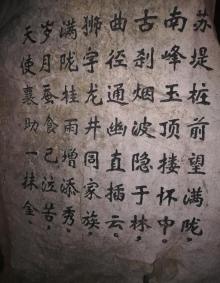 苏堤桩前望满陇，
南峰玉顶搂怀中。
古刹烟波隐于林，
曲径通幽直插云。
狮字龙井同家族，
满陇桂雨增添秀。
岁月蚕食已泣苦，
天使襄助一抹金。